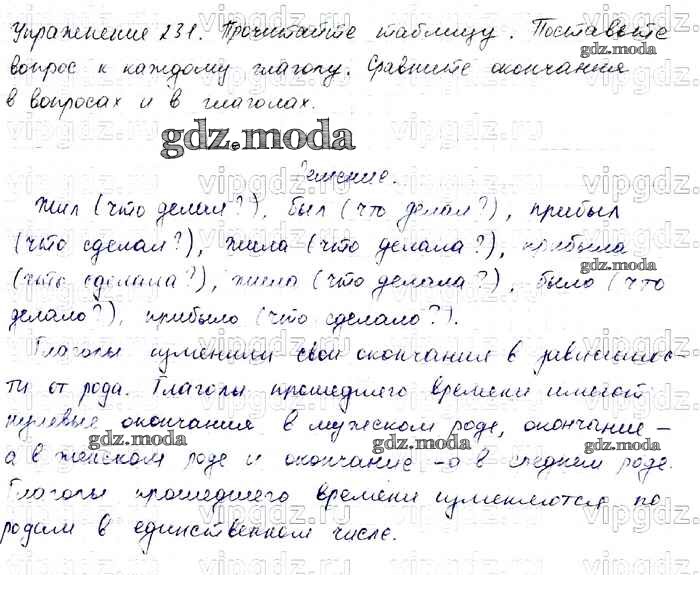 Упражнение 231. Прочитайте таблицу. Поставьте
вопрос к каждому глаголу. Сравните окончания
в вопросах и в глаголах.
gdz.moda
Решение.
Жил (что делал?), был (что делал?), прибыл
(что сделал?), жила (что делала?), прибыла
(что сделала?), (что делала?), было (что
делало?), прибыло (что сделало?).
Глаголы изменили свои окончания в зависимос-
ти от рода. Глаголы прошедшего времени имеют
нулевые окончания в мужском роде, окончание -
а в женском роде и окончание -о в среднем роде.
Глаголы прошедшего времени изменяются по
родам в единственном числе.